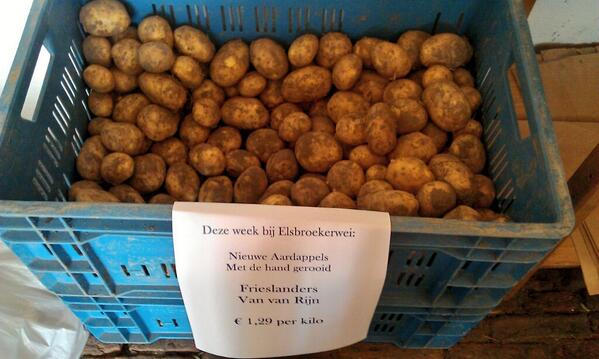 Deze week bij Elsbroekerwei:
Nieuwe Aardappels
Met de hand gerooid
Frieslanders
Van van Rijn
€ 1,29 per kilo